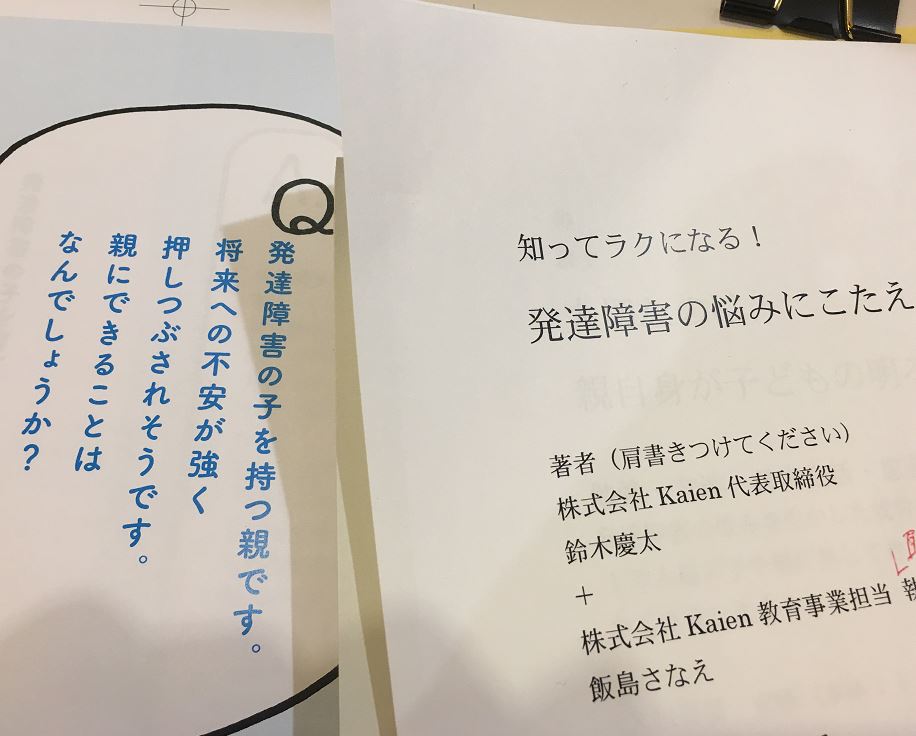 Q
発達障害の子を持つ親です。
将来への不安が強く
押しつぶされそうです。
親にできることは
なんでしょうか?
知ってラクになる!
発達障害の悩みにこたえ
著者(肩書きつけてください)
株式会社Kaien代表取締役
鈴木慶太
+
株式会社Kaien教育事業担当 執
飯島さなえ